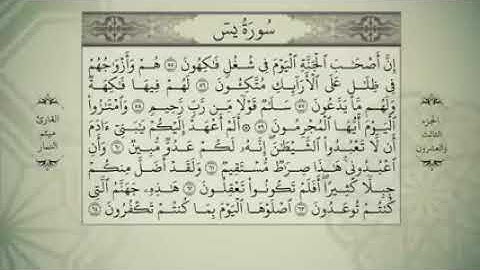 سُورَةُ يسٓ
إِنَّ أَصْحَٰبَ ٱلْجَنَّةِ ٱلْيَوْمَ فِى شُغُلٍ فَٰكِهُونَ ٥٥ هُمْ وَأَزْوَٰجُهُمْ
فِى ظِلَٰلٍ عَلَى ٱلْأَرَآئِكِ مُتَّكِـُٔونَ ٥٦ لَهُمْ فِيهَا فَٰكِهَةٌ
وَلَهُم مَّا يَدَّعُونَ ٥٧ سَلَٰمٌ قَوْلًا مِّن رَّبٍّ رَّحِيمٍ ٥٨ وَٱمْتَٰزُوا۟
ٱلْيَوْمَ أَيُّهَا ٱلْمُجْرِمُونَ ٥٩ أَلَمْ أَعْهَدْ إِلَيْكُمْ يَٰبَنِىٓ ءَادَمَ
أَن لَّا تَعْبُدُوا۟ ٱلشَّيْطَٰنَ إِنَّهُۥ لَكُمْ عَدُوٌّ مُّبِينٌ ٦٠ وَأَنِ
ٱعْبُدُونِى هَٰذَا صِرَٰطٌ مُّسْتَقِيمٌ ٦١ وَلَقَدْ أَضَلَّ مِنكُمْ
جِبِلًّا كَثِيرًا أَفَلَمْ تَكُونُوا۟ تَعْقِلُونَ ٦٢ هَٰذِهِۦ جَهَنَّمُ ٱلَّتِى
كُنتُمْ تُوعَدُونَ ٦٣ ٱصْلَوْهَا ٱلْيَوْمَ بِمَا كُنتُمْ تَكْفُرُونَ ٦٤
الجزء
الثالث
والعشرون
القارئ
هيثم
الدخين